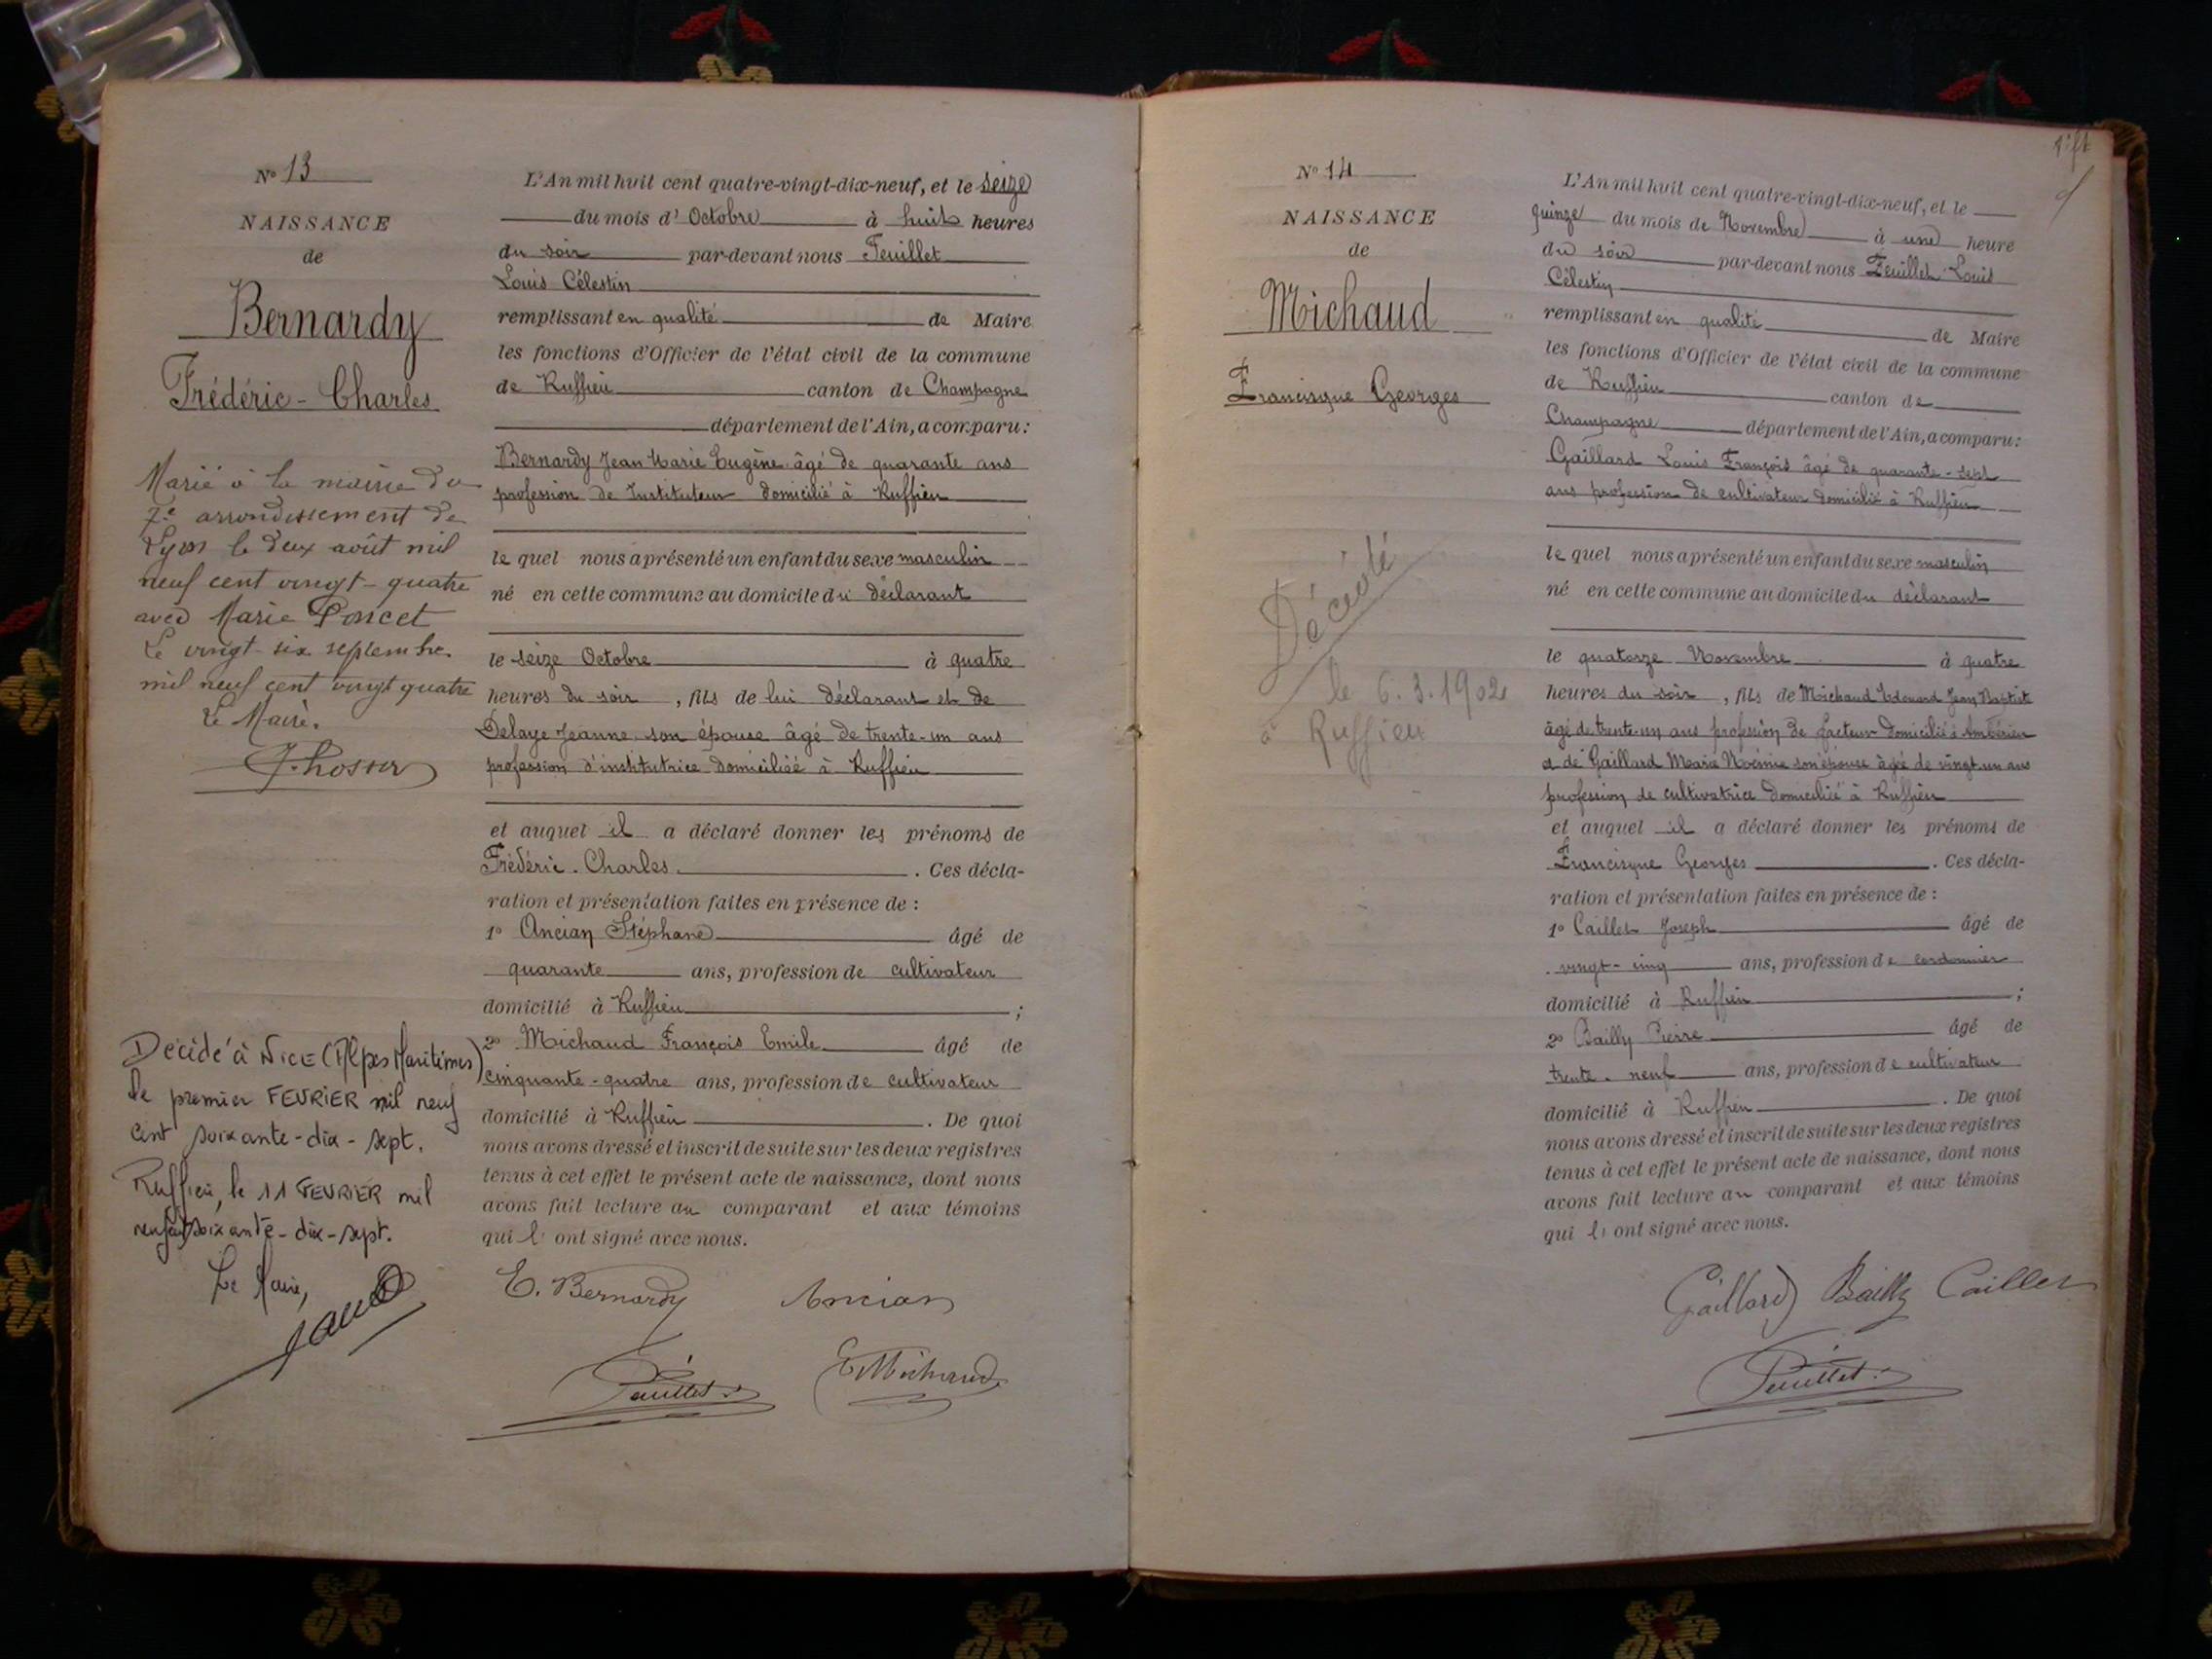 N° 13
NAISSANCE
de
Bernardy
Frédéric - Charles
Marié à la mairie du
7e arrondissement de
Lyon le deux août mil
neuf cent vingt-quatre
avec Marie Poncet
Le vingt-six septembre
mil neuf cent vingt quatre
Le Maire,
Décédé à NICE (Alpes Maritimes)
le premier FEVRIER mil neuf
cent soixante-dix-sept.
Ruffieu, le 11 FEVRIER mil
neuf cent soixante-dix-sept.
Le Maire,
L'An mil huit cent quatre-vingt-dix-neuf, et le seize
du mois d' Octobre à huit heures
du soir par-devant nous Feuillet
Louis Célestin
remplissant en qualité de Maire
les fonctions d'Officier de l'état civil de la commune
de Ruffieu canton de Champagne
département de l'Ain, a comparu :
Bernardy Jean Marie Eugène âgé de quarante ans
profession de Instituteur domicilié à Ruffieu
le quel nous a présenté un enfant du sexe masculin
né en cette commune au domicile du déclarant
le seize Octobre à quatre
heures du soir, fils de lui déclarant et de
Delaye Jeanne son épouse âgé de trente-un ans
profession d'institutrice domiciliée à Ruffieu
et auquel il a déclaré donner les prénoms de
Frédéric. Charles. Ces décla-
ration et présentation faites en présence de :
1° Ancian Stéphane âgé de
quarante ans, profession de cultivateur
domicilié à Ruffieu ;
2° Michaud François Emile âgé de
cinquante-quatre ans, profession de cultivateur
domicilié à Ruffieu . De quoi
nous avons dressé et inscrit de suite sur les deux registres
tenus à cet effet le présent acte de naissance, dont nous
avons fait lecture au comparant et aux témoins
qui l' ont signé avec nous.
E. Bernardy Ancian
Feuillet E Michaud
N° 14
NAISSANCE
de
Michaud
Francisque Georges
Décédé
le 6.3.1902
à Ruffieu
L'An mil huit cent quatre-vingt-dix-neuf, et le
quinze du mois de Novembre à une heure
du soir par-devant nous Feuillet Louis
Célestin
remplissant en qualité de Maire
les fonctions d'Officier de l'état civil de la commune
de Ruffieu canton de
Champagne département de l'Ain, a comparu :
Gaillard Louis François âgé de quarante-sept
ans profession de cultivateur domicilié à Ruffieu
le quel nous a présenté un enfant du sexe masculin
né en cette commune au domicile du déclarant
le quatorze Novembre à quatre
heures du soir, fils de Michaud Edouard Jean Baptiste
âgé de trente-un ans profession de facteur domicilié à Ambérieu
et de Gaillard Marie Noémie son épouse âgée de vingt-un ans
profession de cultivatrice domiciliée à Ruffieu
et auquel il a déclaré donner les prénoms de
Francisque Georges . Ces décla-
ration et présentation faites en présence de :
1° Caillet Joseph âgé de
vingt-cinq ans, profession de cordonnier
domicilié à Ruffieu ;
2° Bailly Pierre âgé de
trente-neuf ans, profession de cultivateur
domicilié à Ruffieu . De quoi
nous avons dressé et inscrit de suite sur les deux registres
tenus à cet effet le présent acte de naissance, dont nous
avons fait lecture au comparant et aux témoins
qui l' ont signé avec nous.
Gaillard Bailly Caillet
Feuillet